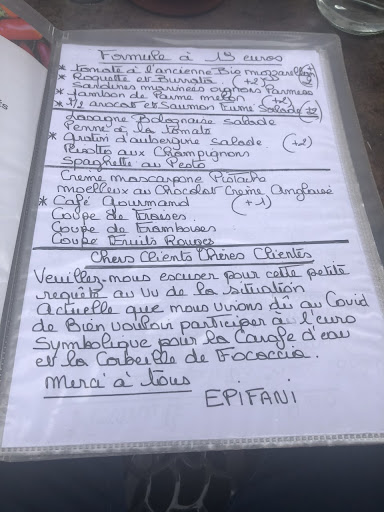 Formule à 19 euros
* Tomate à l'ancienne Bio mozzarella (+2)
* Roquette et Burrata (+2)
Sardines marinées oignons Parmeso
* Jambon de Parme melon (+2)
* 1/2 avocat et Saumon Fumé Salade +2
Lasagne Bolognaise salade
Penne à la tomate
* Gratin d'aubergine salade (+2)
Risotto aux Champignons
Spaghetti au Pesto
Crème mascarpone Pistache
Moelleux au Chocolat Crème Anglaise
* Café Gourmand (+1)
Coupe de Fraises
Coupe de Framboises
Coupe Fruits Rouges
Chers Clients Chères Clientes
Veuillez-nous excuser pour cette petite
requête au vu de la situation
actuelle que nous vivons dû au Covid
de Bien vouloir participer à l'euro
Symbolique pour la Carafe d'eau
et la Corbeille de Focaccia.
Merci à tous
EPIFANI